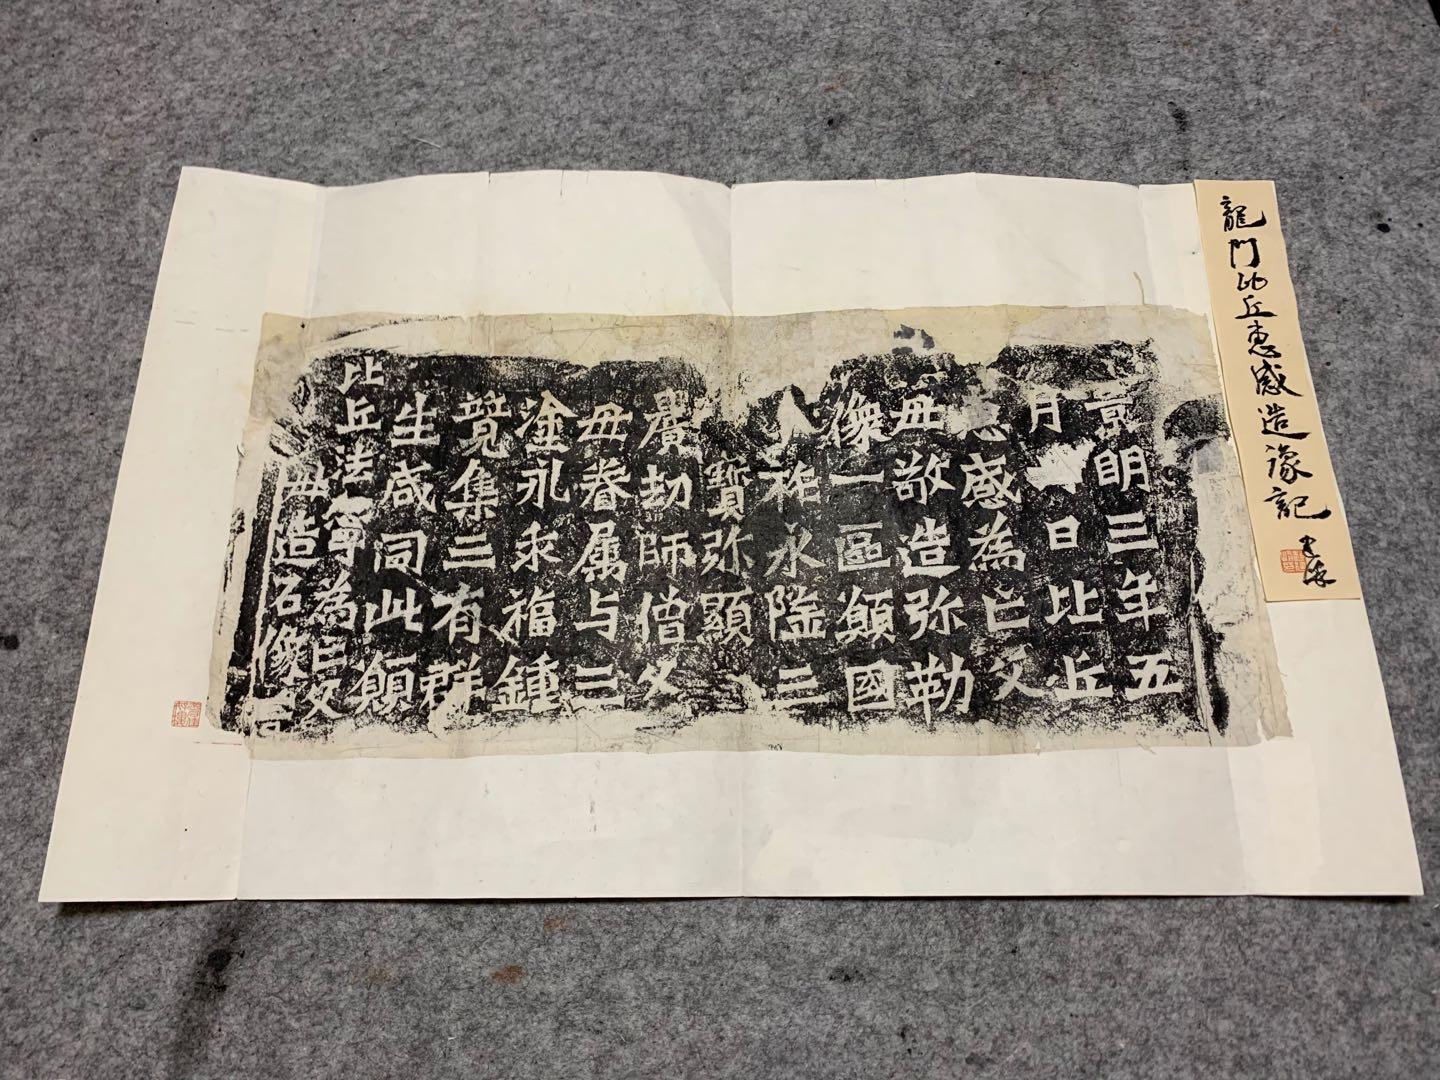 龍門比丘惠感造像記
景明三年五
月日比丘
惠感為亡父
母敬造弥勒
像一區願國
祚永隆三
寶弥顯
曠劫師僧父
母眷属与三
塗永乖福鍾
竟集三有群
生咸同此願
比丘法寧為亡父
母造石像